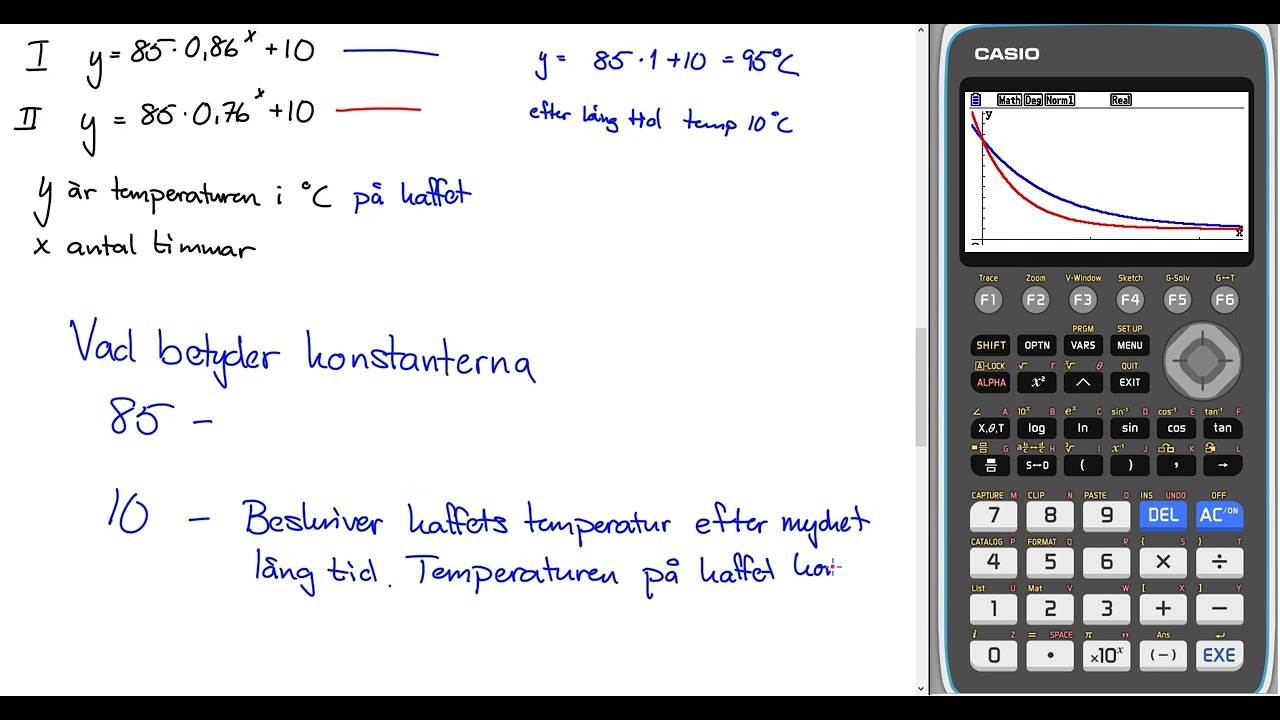 I y = 85 · 0,86^x + 10
y = 85 · 1 + 10 = 95°C
II y = 85 · 0,76^x + 10
efter lång tid temp 10°C
y är temperaturen i °C på kaffet
x antal timmar
Vad betyder konstanterna
85 –
10 – Beskriver kaffets temperatur efter mycket
lång tid. Temperaturen på kaffet kom
CASIO
Math Deg Norm1 Real
y
x
Trace Zoom V-Window Sketch G-Solv G↔T
F1 F2 F3 F4 F5 F6
PRGM SET UP
SHIFT OPTN VARS MENU
A-LOCK √ r ˣ√ θ QUIT
ALPHA x² ^ EXIT
∠ A 10ˣ B eˣ C sin⁻¹ D cos⁻¹ E tan⁻¹ F
X,θ,T log ln sin cos tan
G H ³√ I x⁻¹ J K L
S↔D ( ) , →
CAPTURE M CLIP N PASTE O INS UNDO OFF
7 8 9 DEL AC/ON
CATALOG P FORMAT Q R { S } T
4 5 6 × ÷
List U Mat V W [ X ] Y
1 2 3 + −
i Z = SPACE π " Ans ↵
0 . ×10ˣ (−) EXE